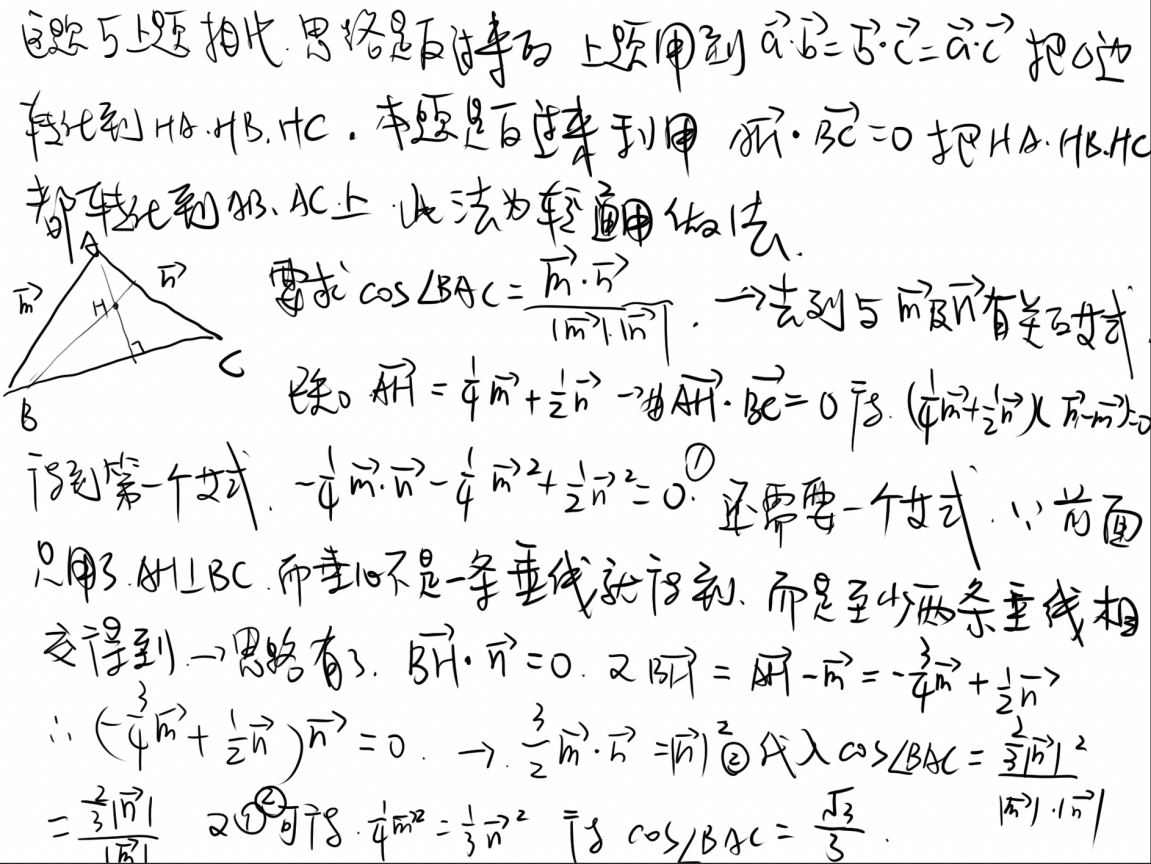 这题与上题相比.思路是反过来的 上题用到 $\vec{a}\cdot\vec{b}=\vec{b}\cdot\vec{c}=\vec{a}\cdot\vec{c}$ 把边
转化到HA.HB.HC. 本题是反过来 利用 $\overrightarrow{AH}\cdot\overrightarrow{BC}=0$ 把HA.HB.HC
都转化到AB、AC上 此法为较通用做法.
A
$\vec{m}$
$\vec{n}$
H
B
C
要求 $\cos\angle BAC=\frac{\vec{m}\cdot\vec{n}}{|\vec{m}|\cdot|\vec{n}|}$. →去列与 $\vec{m}$及$\vec{n}$有关的式.
已知 $\overrightarrow{AH}=\frac{1}{4}\vec{m}+\frac{1}{2}\vec{n}$ →由$\overrightarrow{AH}\cdot\overrightarrow{BC}=0$ 得. $(\frac{1}{4}\vec{m}+\frac{1}{2}\vec{n})(\vec{n}-\vec{m})=0$
得到第一个式. $-\frac{1}{4}\vec{m}\cdot\vec{n}-\frac{1}{4}\vec{m}^2+\frac{1}{2}\vec{n}^2=0.$ ① 还需要一个式. ∵前面
只用了.AH⊥BC.而垂心不是一条垂线就得到.而是至少两条垂线相
交得到.→思路有了. $\overrightarrow{BH}\cdot\vec{n}=0$. 又$\overrightarrow{BH}=\overrightarrow{AH}-\vec{m}=-\frac{3}{4}\vec{m}+\frac{1}{2}\vec{n}$
∴ $(-\frac{3}{4}\vec{m}+\frac{1}{2}\vec{n})\vec{n}=0$. →. $\frac{3}{2}\vec{m}\cdot\vec{n}=|\vec{n}|^2$ ② 代入 $\cos\angle BAC=\frac{\frac{2}{3}|\vec{n}|^2}{|\vec{m}|\cdot|\vec{n}|}$
$=\frac{\frac{2}{3}|\vec{n}|}{|\vec{m}|}$ 又①②可得. $\frac{1}{4}\vec{m}^2=\frac{1}{3}\vec{n}^2$ 得 $\cos\angle BAC=\frac{\sqrt{3}}{3}$.